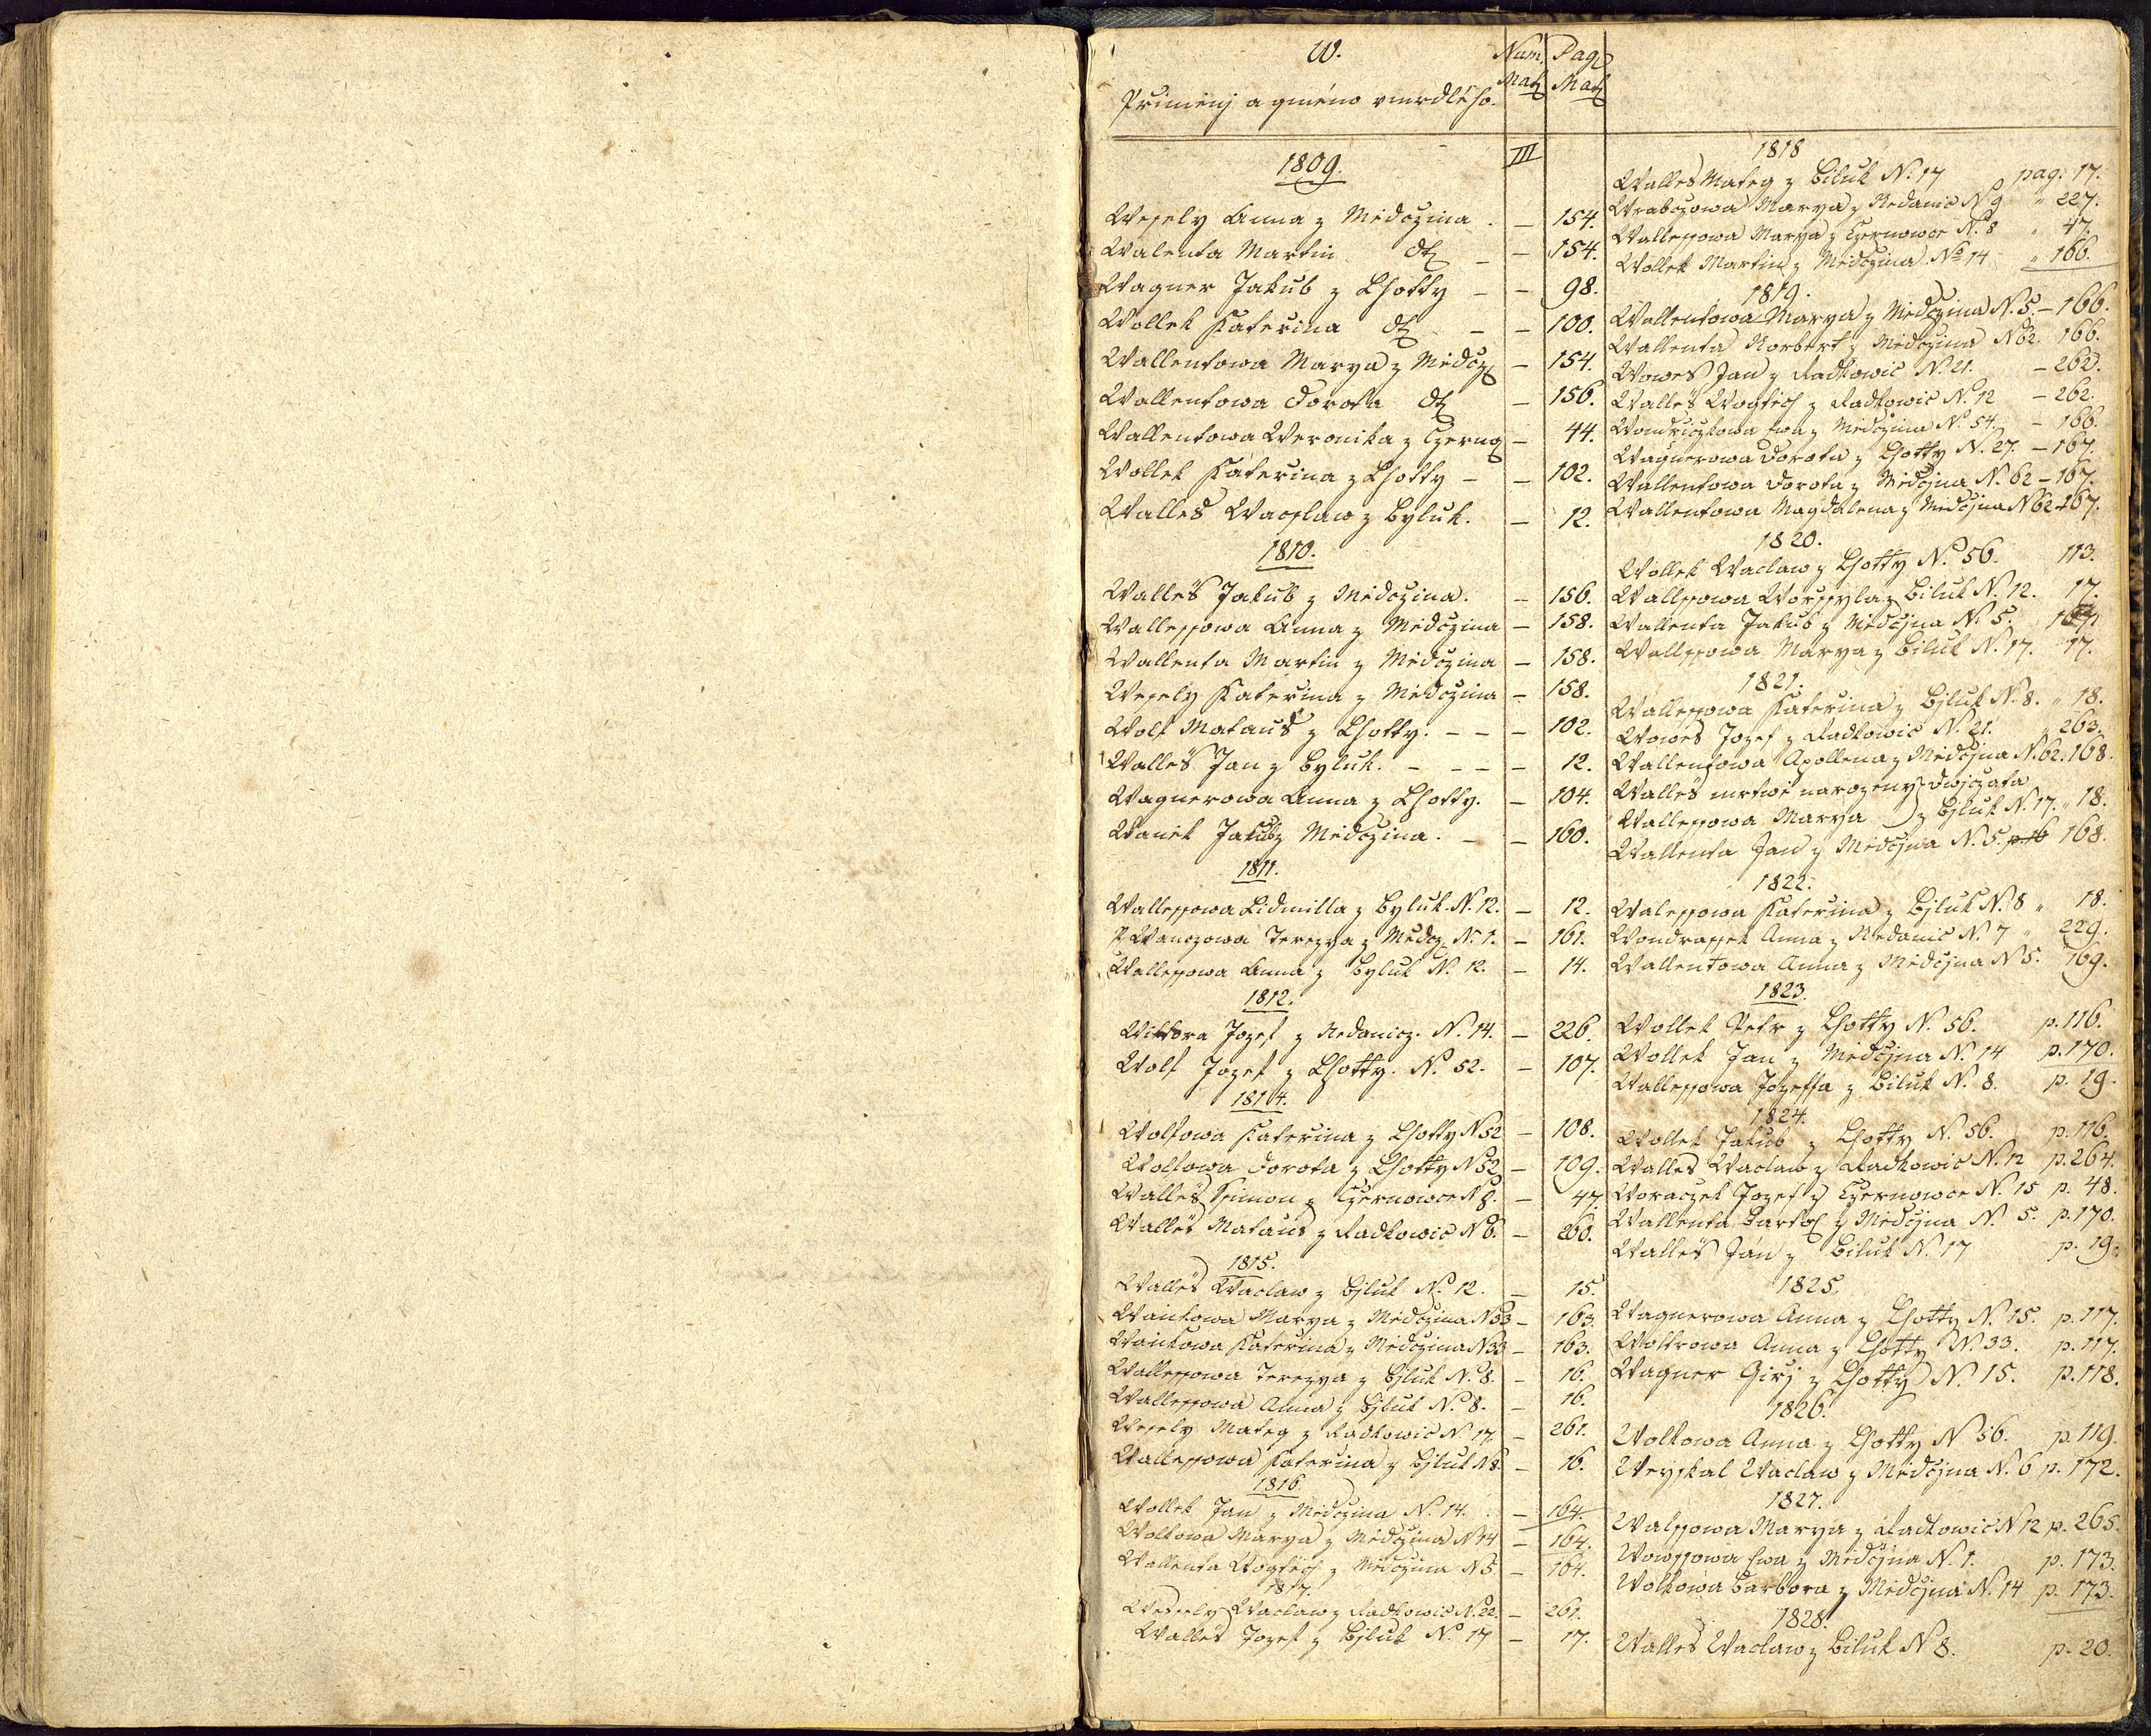 W.
Přimenj a gméno vmrdlého.
Num. Pag.
Mat. Mat.
III
1809.
Wesely Anna z Miedczina. – 154.
Walenta Martin dt – – 154.
Wagner Jakub z Lhotty – – 98.
Wollek Katerina dt – – 100.
Wallentowa Marya z Miedcz – 154.
Wallentowa Dorota dt – 156.
Wallentowa Weronika z Czerno – 44.
Wollek Katerina z Lhotty – – 102.
Walles Wacslaw z Byluk. – 12.
1810.
Walleš Jakub z Miedczina. – 156.
Wallessowa Anna z Miedczina – 158.
Wallenta Martin z Miedczina – 158.
Wesely Katerina z Miedczina – 158.
Wolf Matauš z Lhotty. – – – 102.
Walleš Jan z Byluk. – – – – 12.
Wagnerowa Anna z Lhotty. – 104.
Waniek Jakub z Miedczina. – – 160.
1811.
Wallessowa Lidmilla z Byluk. N. 12. – 12.
Wanczowa Terezya z Miedcz. N. 1. – 161.
Wallessowa Anna z Byluk N. 12. – 14.
1812.
Wiktora Jozef z Nedanicz. N. 14. – 226.
Wolf Jozef z Lhotty. N. 52. – 107.
1814.
Wolfowa Katerina z Lhotty N 52 – 108.
Wolfowa Dorota z Lhotty N 52 – 109.
Walleš Simon z Czernowce N 8. – 47.
Walleš Mataus z Radkowic N 6. – 260.
1815.
Walleš Waclaw z Bjluk N. 12. – 15.
Wankowa Marya z Miedczina N 33 – 163.
Wankowa Katerina z Miedczina N 33 – 163.
Wallessowa Terezya z Bjluk N. 8. – 16.
Wallessowa Anna z Bjluk N. 8. – 16.
Wesely Mateg z Radkowic N. 17. – 261.
Wallessowa Katerina z Bjluk N 8. – 16.
1816.
Wollek Jan z Miedczina N. 14. – 164.
Wolkowa Marya z Miedczina N 14 – 164.
Wallenta Wogtěch z Miedczina N 5 – 164.
1817.
Wessely Waclaw z Radkowic N. 22. – 261.
Walleš Jozef z Bjluk N. 17 – 17.
1818
Walles Mateg z Biluk N. 17 pag. 17.
Wrabczowa Marya z Nedanic N 9 " 227.
Wallessowa Marya z Czernowce N. 8 " 47.
Wollek Martin z Miedczina No 14 " 166.
1819.
Wallentowa Marya z Miedczina N. 5. – 166.
Wallenta Norbert z Miedczina N 62. 166.
Wowes Jan z Radkowic N. 21. – 262.
Walleš Wogtěch z Radkowic N. 12 – 262.
Wondriczkowa Ewa z Miedczina N. 54. – 166.
Wagnerowa Dorota z Lhotty N. 27. – 167.
Wallentowa Dorota z Miedčjna N. 62 – 167.
Wallentowa Magdalena z Miedčjna N 62 – 167.
1820.
Wollek Waclaw z Lhotty N. 56. 113.
Wallssowa Worssyla z Biluk N. 12. 17.
Wallenta Jakub z Miedčjna N. 5. 167.
Wallssowa Marya z Biluk N. 17. 17.
1821.
Wallessowa Katerina z Bjluk N. 8. " 18.
Wowes Jozef z Radkowic N. 21. " 263.
Wallentowa Apollena z Miedčjna N. 62. 168.
Walleš mrtwě narozeny } dwojczata
Wallessowa Marya } z Bjluk N. 17. " 18.
Wallenta Jan z Miedčjna N. 5. p. 16 168.
1822.
Walessowa Katerina z Bjluk N. 8 " 18.
Wondrassek Anna z Nedanic N. 7 " 229.
Wallentowa Anna z Miedčjna N 5. 169.
1823.
Wollek Petr z Lhotty N. 56. p. 116.
Wollek Jan z Miedčjna N. 14 p. 170.
Wallessowa Jozeffa z Biluk N. 8. p. 19.
1824.
Wollek Jakub z Lhotty N. 56. p. 116.
Walles Waclaw z Radkowic N. 12 p. 264.
Woraczek Jozef z Czernowce N. 15 p. 48.
Wallenta Bartol z Miedčjna N. 5. p. 170.
Walleš Ján z Biluk N. 17 p. 19.
1825.
Wagnerowa Anna z Lhotty N. 15. p. 117.
Wolkrowa Anna z Lhotty N. 33. p. 117.
Wagner Girj z Lhotty N. 15. p. 118.
1826.
Wolkowa Anna z Lhotty N 56. p. 119.
Weyskal Waclaw z Miedčjna N. 6 p. 172.
1827.
Walssowa Marya z Radkowic N 12 p. 265.
Wowssowa Ewa z Miedčjna N. 1. p. 173.
Wolkowa Barbora z Miedčjna N. 14 p. 173.
1828.
Walles Waclaw z Biluk N 8. p. 20.